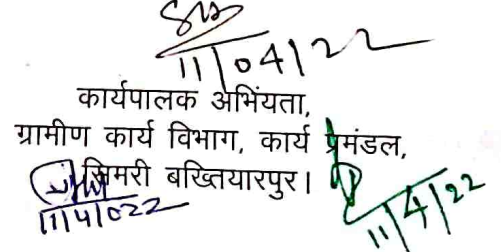 11/04/22
कार्यपालक अभियंता,
ग्रामीण कार्य विभाग, कार्य प्रमंडल,
सिमरी बख्तियारपुर।
11/4/022
11/4/22